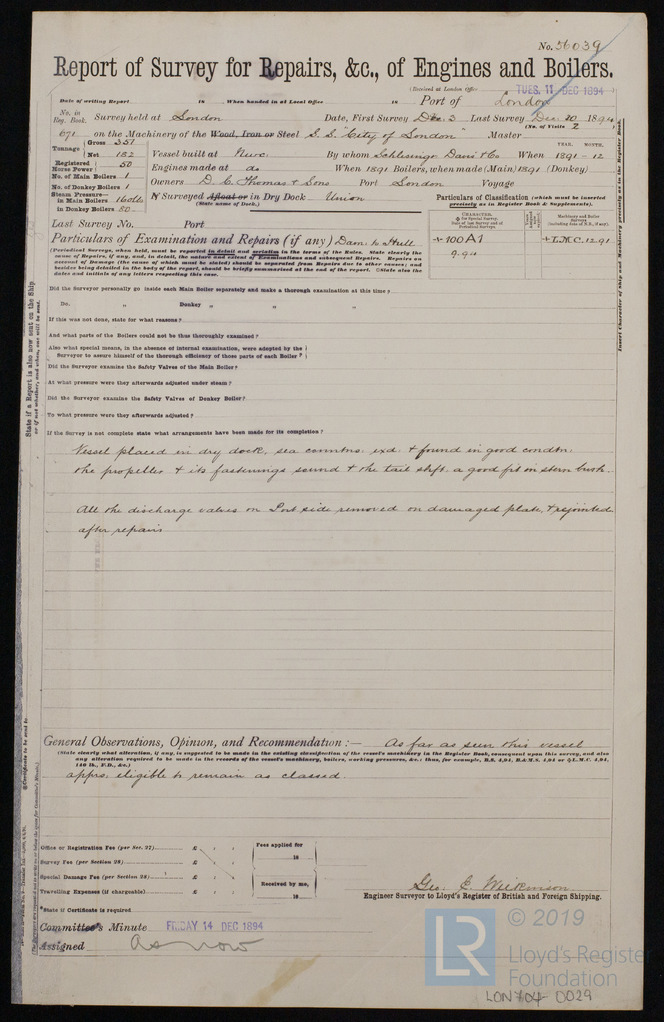 No. 56039
Report of Survey for Repairs, &c., of Engines and Boilers.
(Received at London Office TUES. 11 DEC 1894)
Date of writing Report 18 When handed in at Local Office 18 Port of London
No. in Reg. Book. Survey held at London Date, First Survey Dec. 3 Last Survey Dec. 20 1894
(No. of Visits 2)
671 on the Machinery of the Wood, Iron or Steel S.S. "City of London" Master
Tonnage Gross 351
Net 182
Vessel built at Nwc. By whom Schlesinger Davis & Co When 1891 - 12
YEAR. MONTH.
Registered Horse Power 50
Engines made at do When 1891 Boilers, when made (Main) 1891 (Donkey)
No. of Main Boilers 1
No. of Donkey Boilers 1
Owners D. C. Thomas & Sons Port London Voyage
Steam Pressure—
in Main Boilers 160 lbs
in Donkey Boilers 50
If Surveyed Afloat or in Dry Dock Union
(State name of Dock.)
Particulars of Classification (which must be inserted precisely as in Register Book & Supplements).
Last Survey No. Port
CHARACTER.
Machinery and Boiler Surveys
+100A1
9.94
+L.M.C. 12.91
Particulars of Examination and Repairs (if any) Dam to Hull
(Periodical Surveys, when held, must be reported in detail and seriatim in the terms of the Rules. State clearly the
cause of Repairs, if any, and, in detail, the nature and extent of Examinations and subsequent Repairs. Repairs on
account of Damage (the cause of which must be stated) should be separated from Repairs due to other causes; and
besides being detailed in the body of the report, should be briefly summarised at the end of the report. State also the
dates and initials of any letters respecting this case.
Did the Surveyor personally go inside each Main Boiler separately and make a thorough examination at this time?
Do. " Donkey " " "
If this was not done, state for what reasons?
And what parts of the Boilers could not be thus thoroughly examined?
Also what special means, in the absence of internal examination, were adopted by the
Surveyor to assure himself of the thorough efficiency of those parts of each Boiler?
Did the Surveyor examine the Safety Valves of the Main Boiler?
At what pressure were they afterwards adjusted under steam?
Did the Surveyor examine the Safety Valves of Donkey Boiler?
To what pressure were they afterwards adjusted?
If the Survey is not complete state what arrangements have been made for its completion?
Vessel placed in dry dock, sea conntns. exd. & found in good condtn.
the propeller & its fastenings sound & the tail shft. a good fit in stern bush.
All the discharge valves on Port side removed on damaged plate, & rejointed
after repairs
General Observations, Opinion, and Recommendation :— As far as seen this vessel
(State clearly what alteration, if any, is suggested to be made in the existing classification of the vessel's machinery in the Register Book, consequent upon this survey, and also
any alteration required to be made in the records of the vessel's machinery, boilers, working pressures, &c.; thus, for example, B.S. 4,94, B.&M.S. 4,94 or +L.M.C. 4,94,
140 lb., F.D., &c.)
apprs. eligible to remain as classed.
Office or Registration Fee (per Sec. 27) £
Survey Fee (per Section 28) £
Special Damage Fee (per Section 28) £
Travelling Expenses (if chargeable) £
Fees applied for
18
Received by me,
18
*State if Certificate is required
Geo. E. Wilkinson
Engineer Surveyor to Lloyd's Register of British and Foreign Shipping.
Committee's Minute FRIDAY 14 DEC 1894
Assigned as now
State if a Report is also now sent on the Ship
or if not whether, and when, one will be sent.
Insert Character of Ship and Machinery precisely as in the Register Book.
LR
© 2019
Lloyd's Register
Foundation
LON704-0029